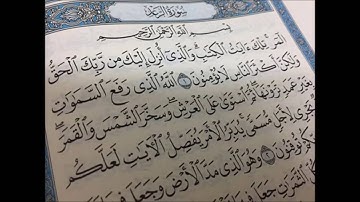 سورة الرعد
بسم الله الرحمن الرحيم
المر تلك ءايت الكتب والذى أنزل إليك من ربك الحق
ولكن أكثر الناس لا يؤمنون ١ الله الذى رفع السموت
بغير عمد ترونها ثم استوى على العرش وسخر الشمس والقمر
يجرى لأجل مسمى يدبر الأمر يفصل الأيت لعلكم
توقنون ٢ وهو الذى مد الأرض وجعل
الثمرت جعل فيها